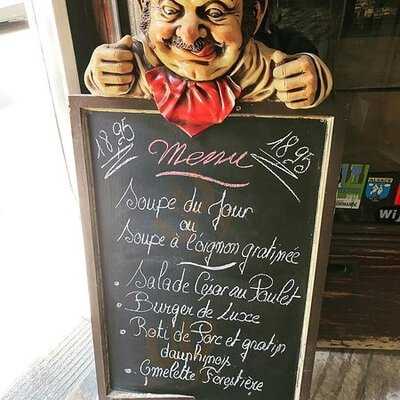 18.95 Menu 18.95
Soupe du Jour
ou
Soupe à l'oignon gratinée
. Salade César au Poulet
. Burger de Luxe
. Roti de Porc et gratin
dauphinois
. Omelette Forestière
ALSACE
Wi